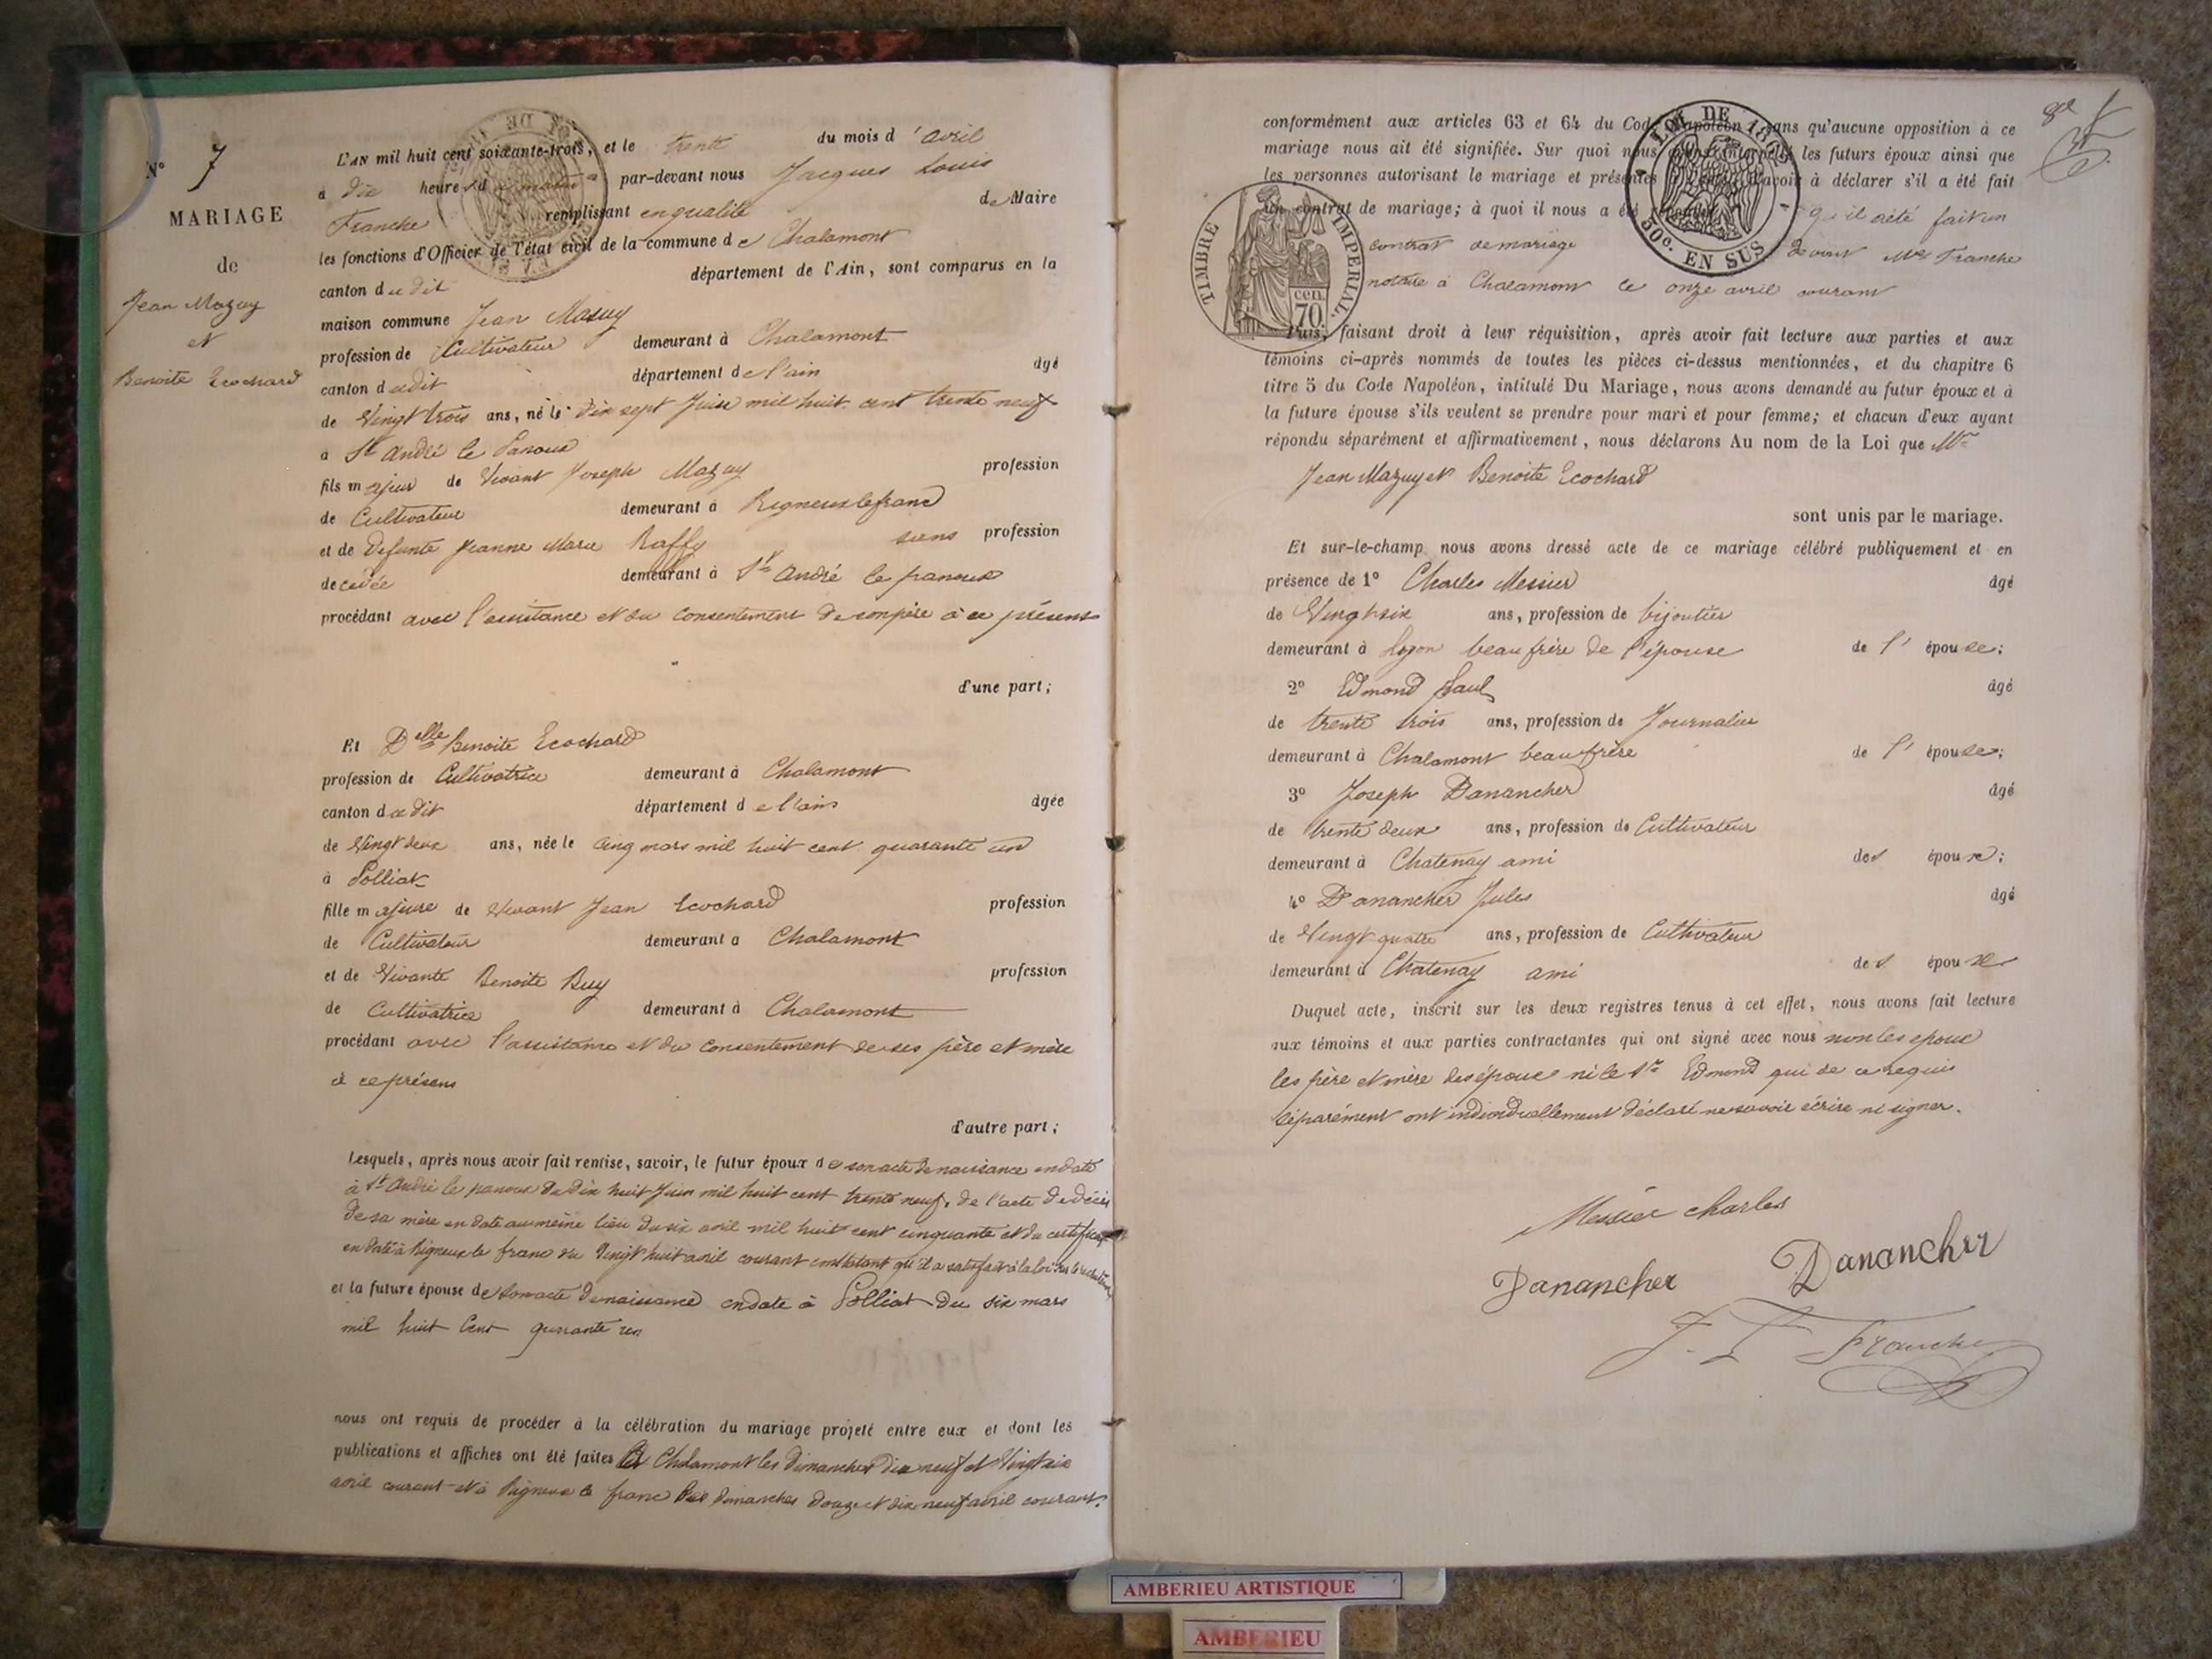 N° 7
MARIAGE
de
Jean Mazuy
et
Benoite Ecochard
L'AN mil huit cent soixante-trois, et le trente du mois d'avril
à dix heures d par-devant nous Jacques Louis
Franche remplissant en qualité de Maire
les fonctions d'Officier de l'état civil de la commune de Chalamont
canton dudit département de l'Ain, sont comparus en la
maison commune Jean Mazuy
profession de Cultivateur demeurant à Chalamont
canton dudit département de l'ain âgé
de Vingt trois ans, né le dix sept Juin mil huit cent trente neuf
à St André le Panoux
fils majeur de Vivant Joseph Mazuy profession
de Cultivateur demeurant à Rigneux le franc
et de Defunte Jeanne Marie Raffy sans profession
decedée demeurant à St André le panoux
procédant avec l'assistance et du consentement de son père à ce présent
d'une part;
Et Delle Benoite Ecochard
profession de Cultivatrice demeurant à Chalamont
canton dudit département de l'ain âgée
de Vingt deux ans, née le cinq mars mil huit cent quarante un
à Polliat
fille majeure de Vivant Jean Ecochard profession
de Cultivateur demeurant à Chalamont
et de Vivante Benoite Buy profession
de Cultivatrice demeurant à Chalamont
procédant avec l'assistance et du consentement de ses père et mère
à ce présens
d'autre part;
Lesquels, après nous avoir fait remise, savoir, le futur époux de son acte de naissance en date
à St André le panoux du dix huit Juin mil huit cent trente neuf, de l'acte de décès
de sa mère en date au même lieu du six avril mil huit cent cinquante et du certificat
en date à Rigneux le franc du Vingt huit avril courant constatant qu'il a satisfait à la loi sur le recrutement
et la future épouse de son acte de naissance en date à Polliat du six mars
mil huit Cent quarante un
nous ont requis de procéder à la célébration du mariage projeté entre eux et dont les
publications et affiches ont été faites à Chalamont les dimanches dix neuf et Vingt six
avril courant et à Rigneux le franc les dimanches douze et dix neuf avril courant.
conformément aux articles 63 et 64 du Code Napoléon, sans qu'aucune opposition à ce
mariage nous ait été signifiée. Sur quoi nous avons interpellé les futurs époux ainsi que
les personnes autorisant le mariage et présentes d'avoir à déclarer s'il a été fait
un contrat de mariage; à quoi il nous a été répondu qu'il a été fait un
contrat de mariage devant Me Franche
notaire à Chalamont le onze avril courant
LOI DE 18
50c. EN SUS
TIMBRE IMPERIAL
cen. 70
Puis, faisant droit à leur réquisition, après avoir fait lecture aux parties et aux
témoins ci-après nommés de toutes les pièces ci-dessus mentionnées, et du chapitre 6
titre 5 du Code Napoléon, intitulé Du Mariage, nous avons demandé au futur époux et à
la future épouse s'ils veulent se prendre pour mari et pour femme; et chacun d'eux ayant
répondu séparément et affirmativement, nous déclarons Au nom de la Loi que Mr
Jean Mazuy et Benoite Ecochard
sont unis par le mariage.
Et sur-le-champ nous avons dressé acte de ce mariage célébré publiquement et en
présence de 1° Charles Messier âgé
de Vingt six ans, profession de bijoutier
demeurant à Lyon beau frère de l'épouse de l'épouse;
2° Edmond Paul âgé
de trente trois ans, profession de Journalier
demeurant à Chalamont beau frère de l'épouse;
3° Joseph Danancher âgé
de trente deux ans, profession de Cultivateur
demeurant à Chatenay ami des époux;
4° Danancher Jules âgé
de Vingt quatre ans, profession de Cultivateur
demeurant à Chatenay ami des époux
Duquel acte, inscrit sur les deux registres tenus à cet effet, nous avons fait lecture
aux témoins et aux parties contractantes qui ont signé avec nous non les epoux
les père et mère des époux ni le Sr Edmond qui de ce requis
séparément ont individuellement déclaré ne savoir écrire ni signer.
Messier charles
Danancher Danancher
J. L Franche
AMBERIEU ARTISTIQUE
AMBERIEU